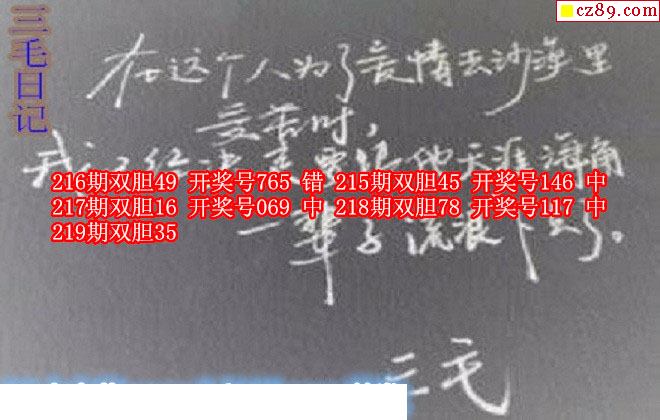 cz89.com
三毛日记
在这个人为了爱情去沙漠里
受苦时，
我心里决定要跟他天涯海角
216期双胆49 开奖号765 错 215期双胆45 开奖号146 中
217期双胆16 开奖号069 中 218期双胆78 开奖号117 中
219期双胆35
一辈子流浪下去了。
三毛